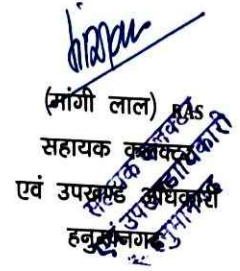 (मांगी लाल) RAS
सहायक कलक्टर
एवं उपखण्ड अधिकारी
हनुमानगढ़
सहायक कलक्टर
एवं उपखण्ड अधिकारी